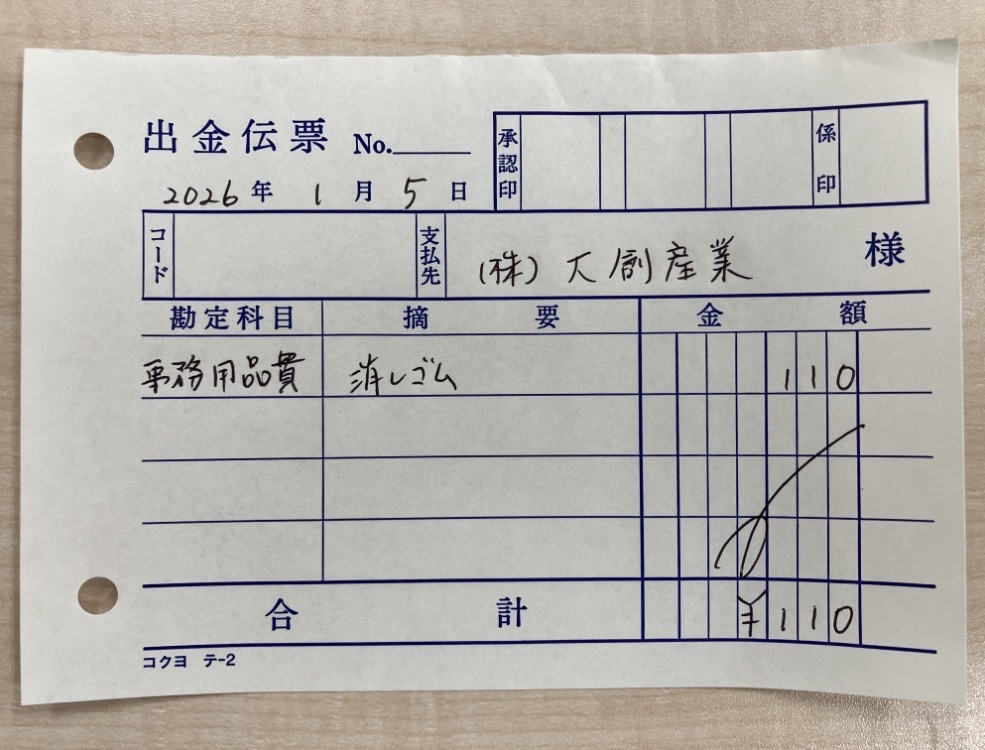 出金伝票 No.
承認印 係印
2026年1月5日
コード 支払先 (株)大創産業 様
勘定科目 摘要 金額
事務用品費 消しゴム 110
合計 ¥110
コクヨ テ-2